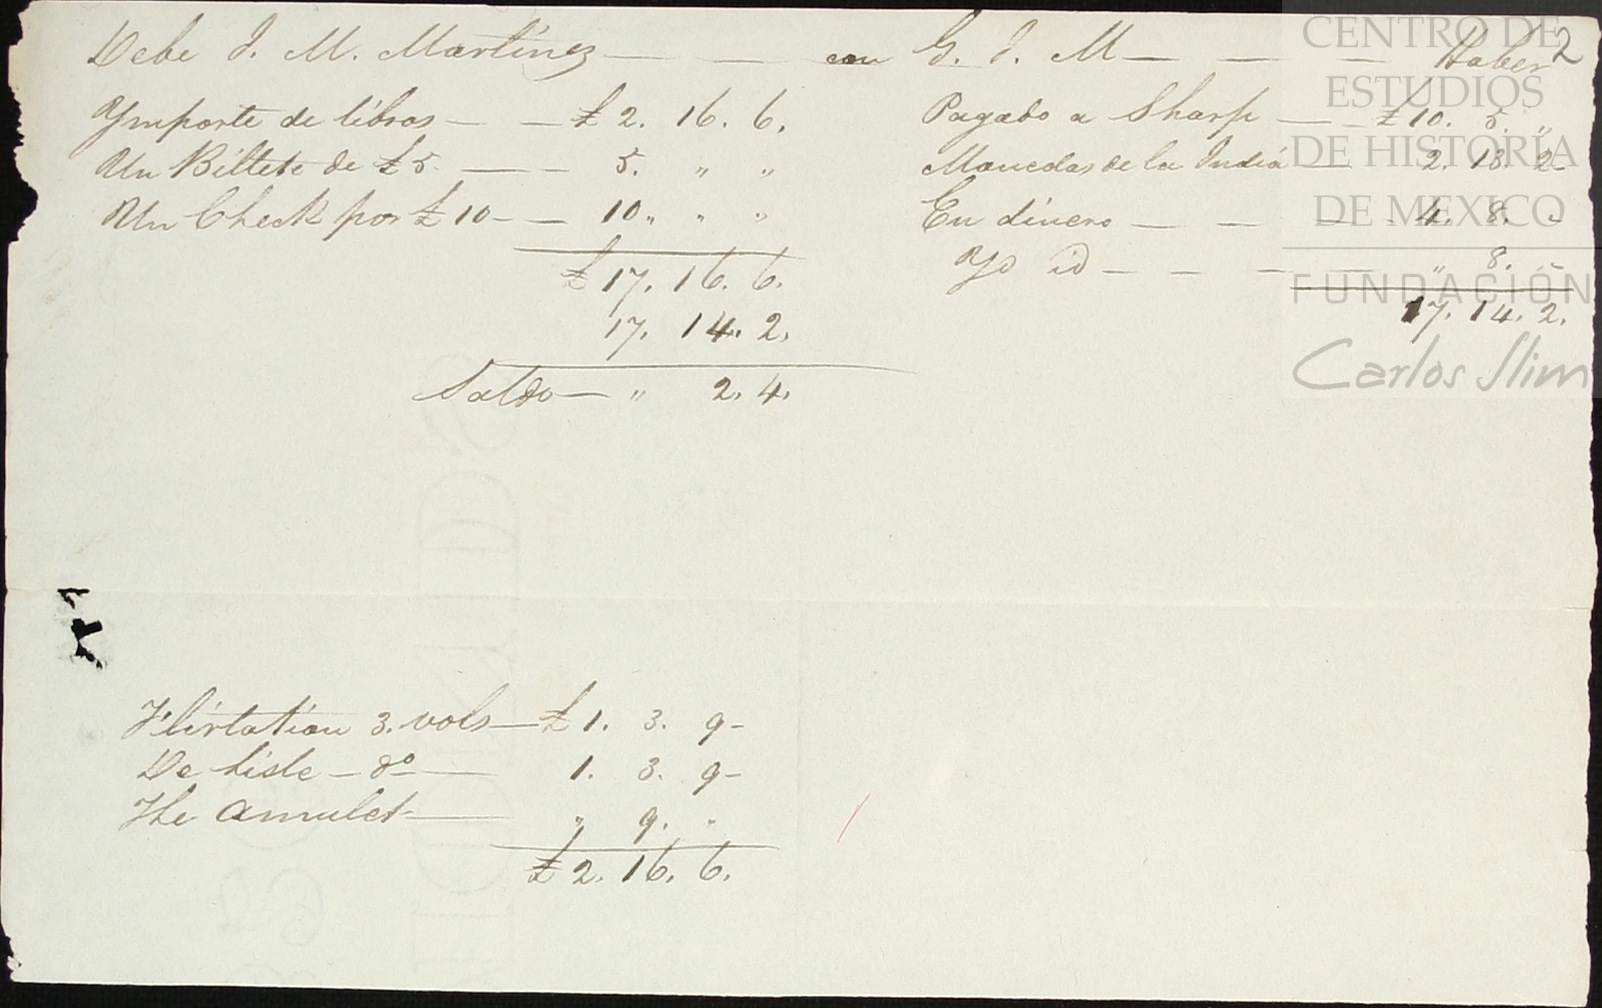 Debe J. M. Martinez — — con G. J. M — — — Haber 2
Ymporte de libros — — £ 2. 16. 6.
Un Billete de £5. — — 5. „ „
Un Check por £10 - — 10 „ „ „
£ 17. 16. 6.
17. 14. 2.
Saldo — „ 2. 4.
Pagado a Sharp — — £10. 5. „
Monedas de la India — 2. 13. 2-
En dinero — — — - 4. 8. -
Yd id — — — — „ 8. „-
17. 14. 2.
Flirtation 3. vols — £ 1. 3. 9-
De Lisle — do — 1. 3. 9-
The Amulet — „ 9. „
£ 2. 16. 6.
CENTRO DE
ESTUDIOS
DE HISTORIA
DE MEXICO
FUNDACIÓN
Carlos Slim